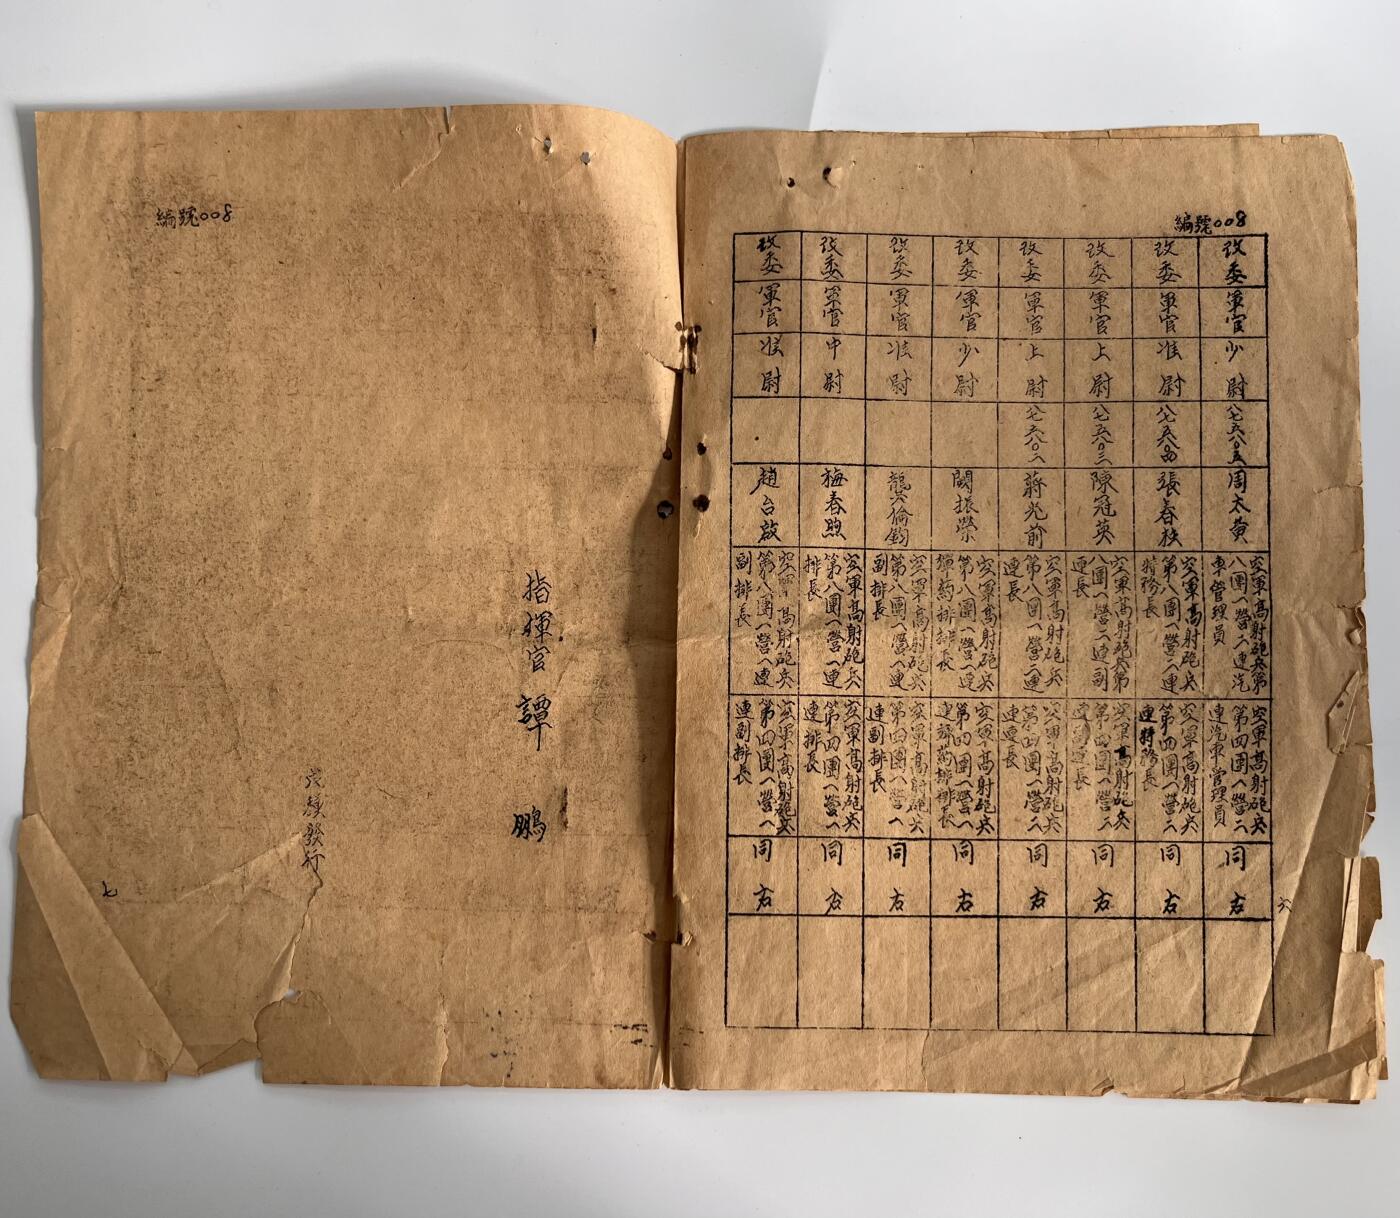 編號008
改委
軍官
少尉
八七五八〇五
周太黄
空軍高射砲兵第
八團一營二連汽
車管理員
空軍高射砲兵
第四團一營二
連汽車管理員
同右
改委
軍官
准尉
八七五八〇四
張春秋
空軍高射砲兵
第八團一營二連
特務長
空軍高射砲兵
第四團一營二
連特務長
同右
改委
軍官
上尉
八七五八〇三
陳冠英
空軍高射砲兵第
八團一營二連副
連長
空軍高射砲兵
第四團一營二
連副連長
同右
改委
軍官
上尉
八七五八〇二
蔣光前
空軍高射砲兵
第八團一營二連
連長
空軍高射砲兵
第四團一營二
連連長
同右
改委
軍官
少尉
闕振榮
空軍高射砲兵
第八團一營一連
彈葯排排長
空軍高射砲兵
第四團一營一
連彈葯排排長
同右
改委
軍官
准尉
龔倫鈞
空軍高射砲兵
第八團一營一連
副排長
空軍高射砲兵
第四團一營一
連副排長
同右
改委
軍官
中尉
梅春煦
空軍高射砲兵
第八團一營一連
排長
空軍高射砲兵
第四團一營一
連排長
同右
改委
軍官
准尉
趙台啟
空軍高射砲兵
第八團一營一連
副排長
空軍高射砲兵
第四團一營一
連副排長
同右
六
編號008
指揮官 譚 鵬
發行
七